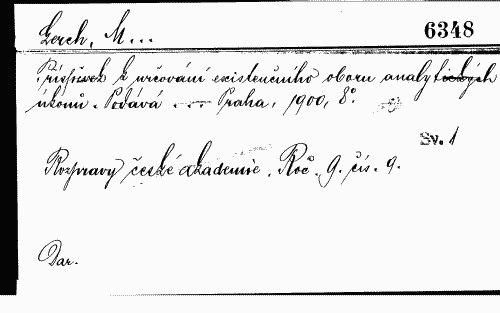 Lerch, M... 6348
Příspěvek k určování existenčního oboru analytických
úkonů. Podává ---- Praha, 1900, 8°.
Sv. 1
Rozpravy české akademie, Roč. 9. čís. 9.
Dar.